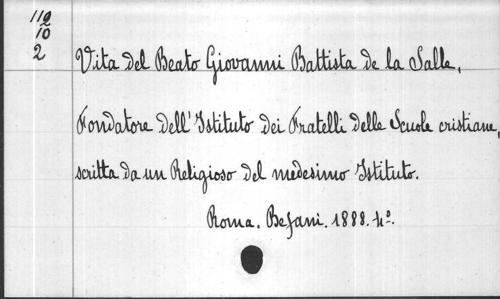 119
10
2
Vita del Beato Giovanni Battista de la Salle,
Fondatore dell'Istituto dei Fratelli delle Scuole cristiane,
scritta da un Religioso del medesimo Istituto.
Roma. Befani. 1888. 4º.